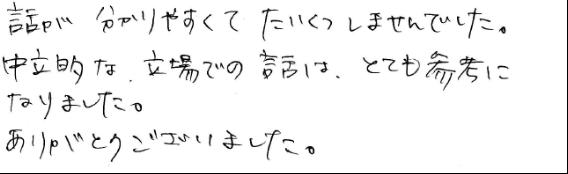 話が 分かりやすくて たいくつ しませんでした。
中立的な、立場での 話は、とても参考に
なりました。
ありがとうございました。